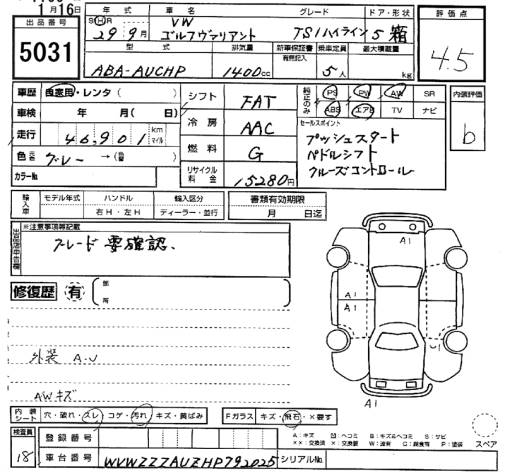 11月16日
出品番号
5031
年式 車名 グレード ドア・形状
S H R VW
29年9月 ゴルフヴァリアント TSIハイライン 5 箱
型式 排気量 新車保証書 乗車定員 最大積載量
有無記入
ABA-AUCHP 1400cc 5人 kg
評価点
4.5
車歴 自家用・レンタ( )
車検 年 月( )
走行 46,901 km マイル
色 元色 グレー→( )
カラーNo
シフト FAT
冷房 AAC
燃料 G
リサイクル料金 15280円
純正のみ PS PW AW SR
ABS エアB TV ナビ
セールスポイント
プッシュスタート
パドルシフト
クルーズコントロール
内装評価
b
輸入車 モデル年式 ハンドル 輸入区分
右H・左H ディーラー・並行
書類有効期限
月 日迄
※注意事項等記載
グレード要確認、
修復歴 有
部所
外装 A.U
AWキズ
A1
A1
A1
A1
内装シート 穴・破れ・スレ・コゲ・汚れ・キズ・黄ばみ
Fガラス キズ・飛石・×要す
検査員
18
登録番号
車台番号 WVWZZZAUZHP792025 シリアルNo.
A:キズ B:キズ&ヘコミ S:サビ
××:交換済 ×:交換要 W:波有 P:塗装
スペア